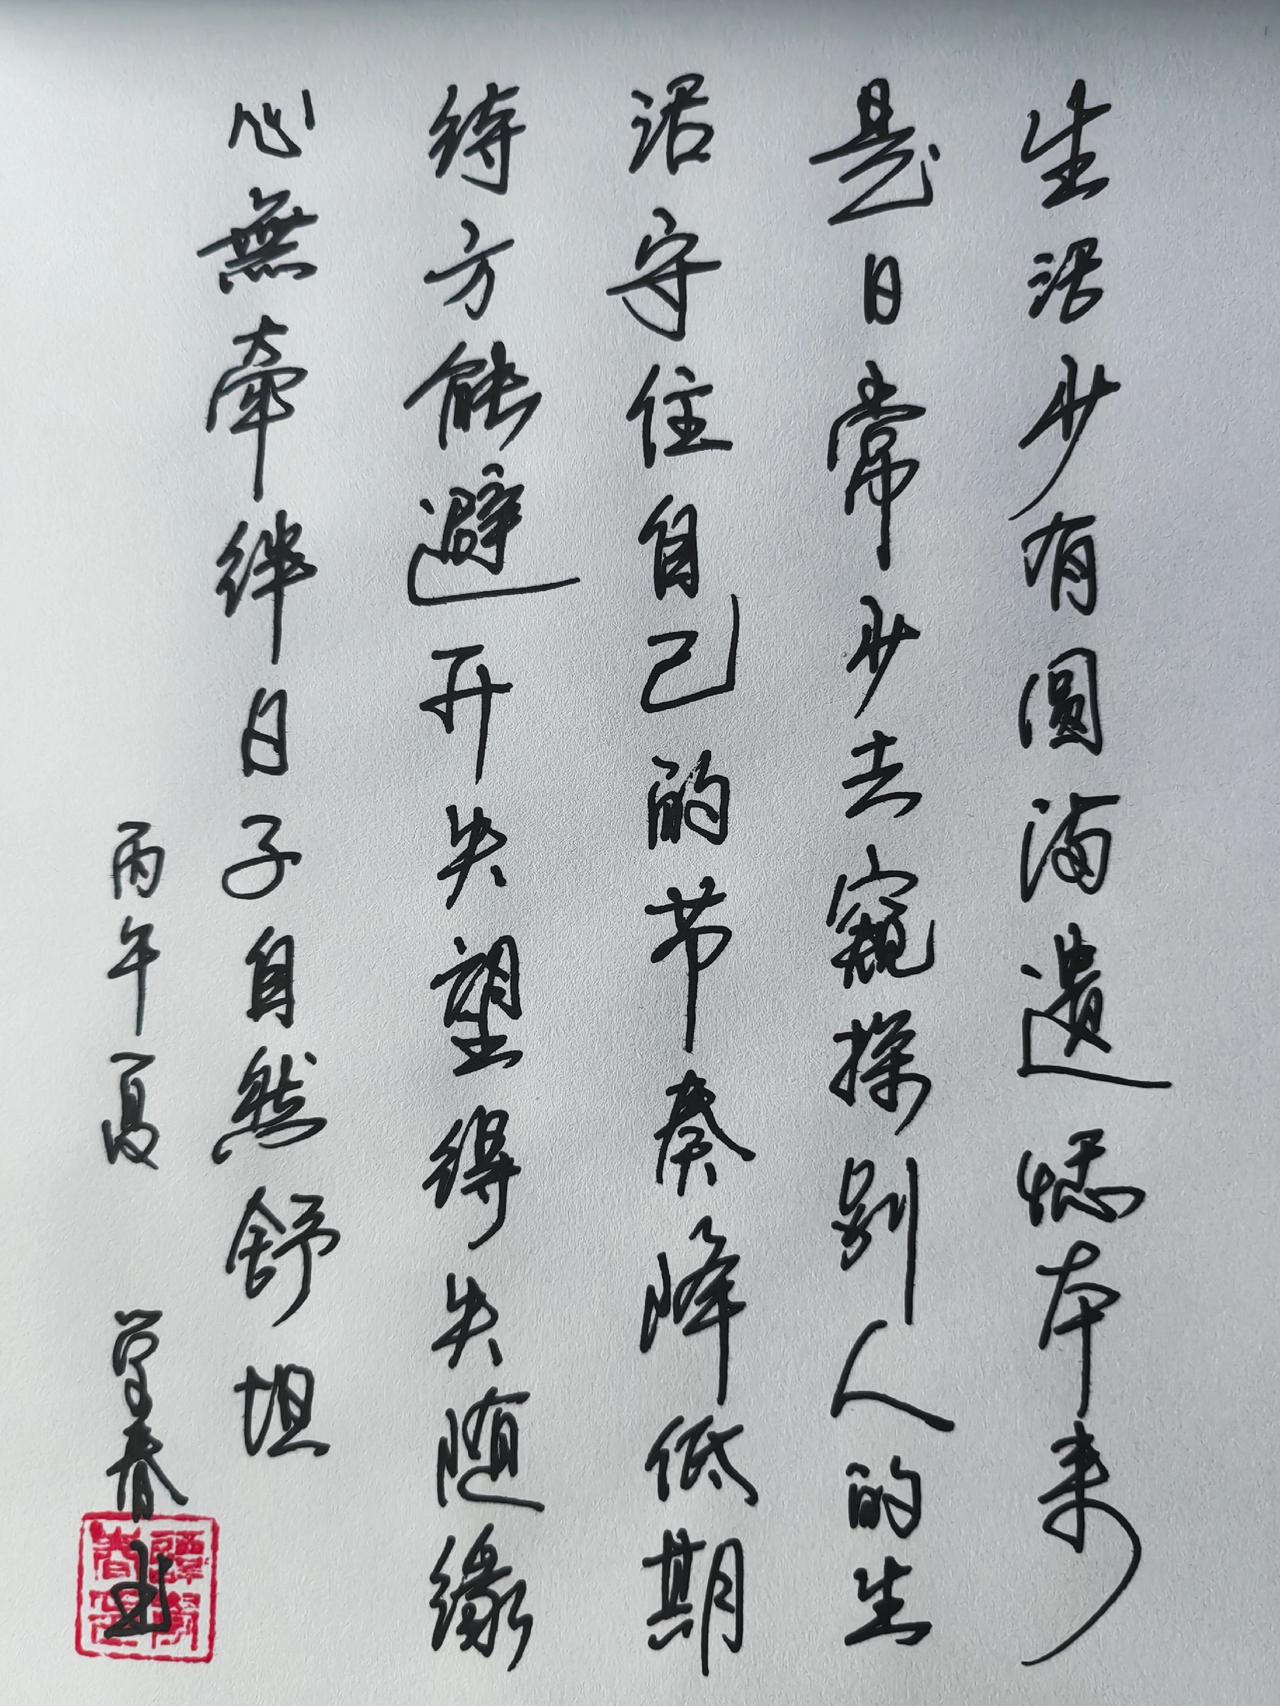 生活少有圆满遗憾本来
是日常少去窥探别人的生
活守住自己的节奏降低期
待方能避开失望得失随缘
心無牽绊日子自然舒坦
丙午夏 学春书
譚学春印